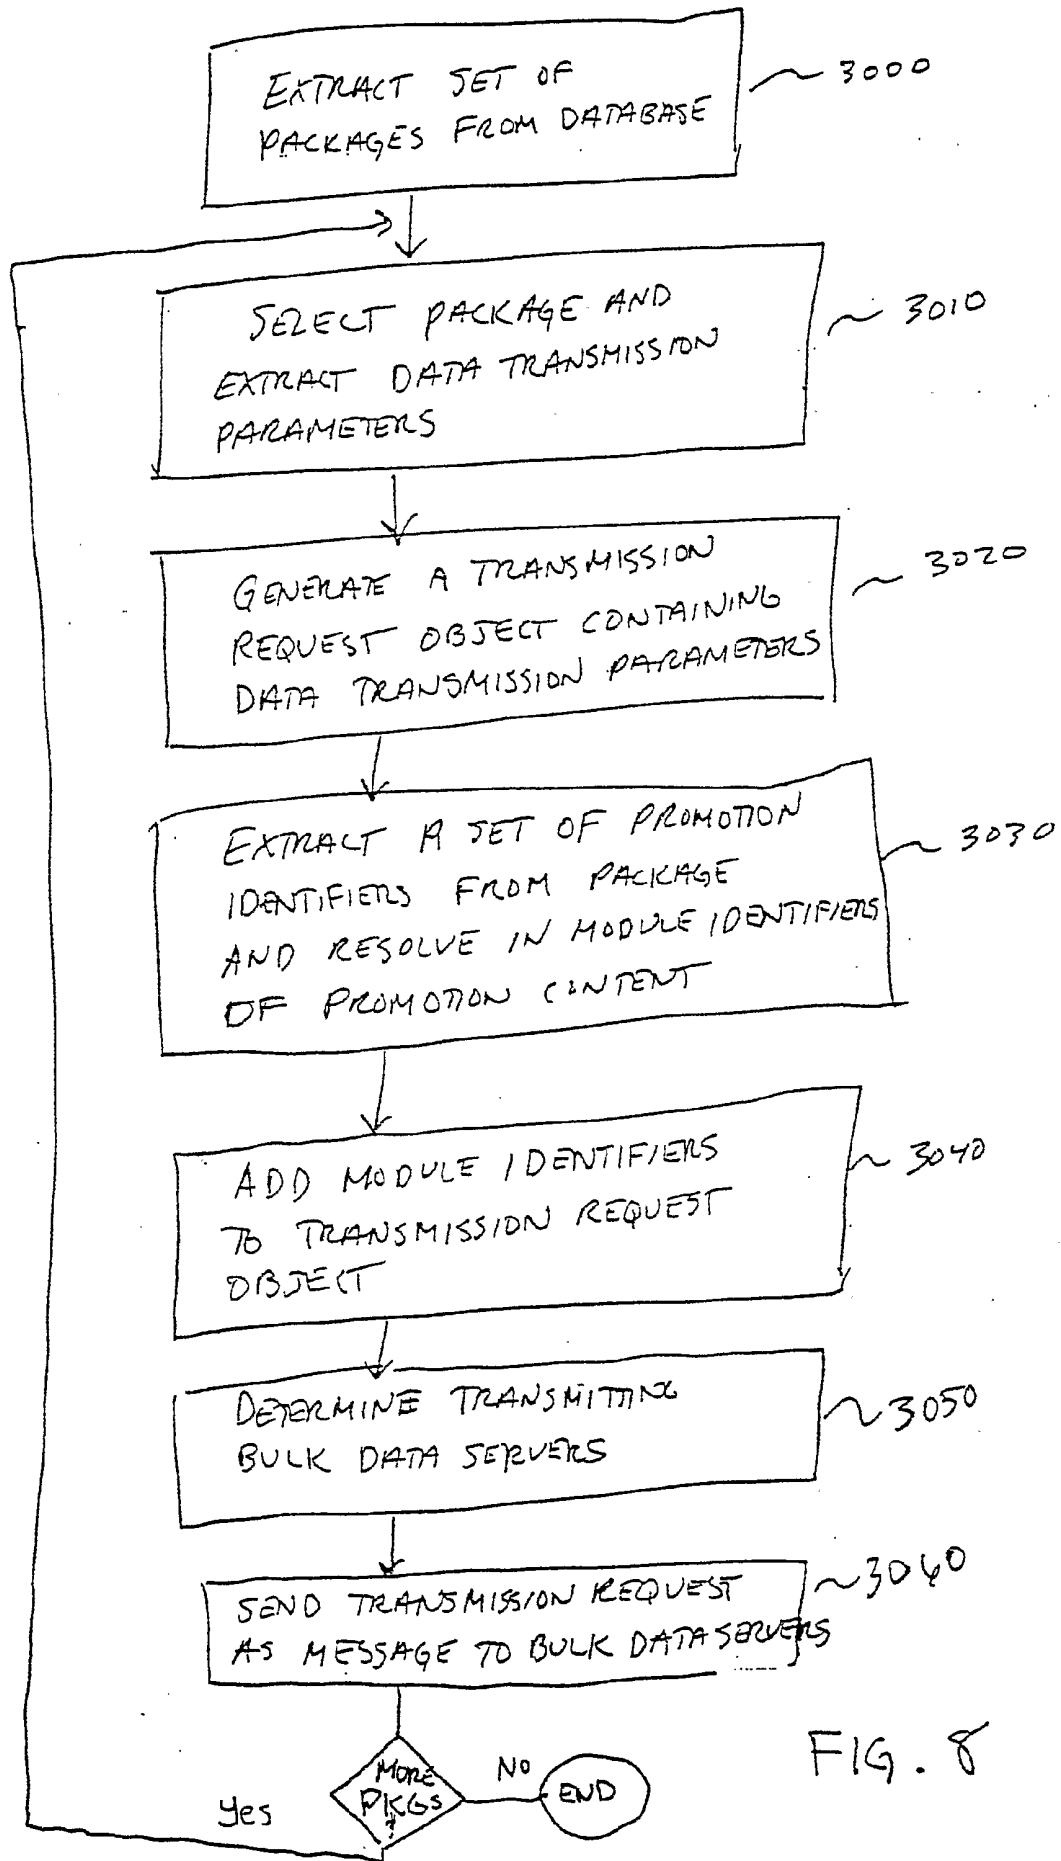 EXTRACT SET OF
PACKAGES FROM DATABASE
3000
SELECT PACKAGE AND
EXTRACT DATA TRANSMISSION
PARAMETERS
3010
GENERATE A TRANSMISSION
REQUEST OBJECT CONTAINING
DATA TRANSMISSION PARAMETERS
3020
EXTRACT A SET OF PROMOTION
IDENTIFIERS FROM PACKAGE
AND RESOLVE IN MODULE IDENTIFIERS
OF PROMOTION CONTENT
3030
ADD MODULE IDENTIFIERS
TO TRANSMISSION REQUEST
OBJECT
3040
DETERMINE TRANSMITTING
BULK DATA SERVERS
3050
SEND TRANSMISSION REQUEST
AS MESSAGE TO BULK DATA SERVERS
3060
MORE
PKGS
?
NO
END
Yes
FIG. 8